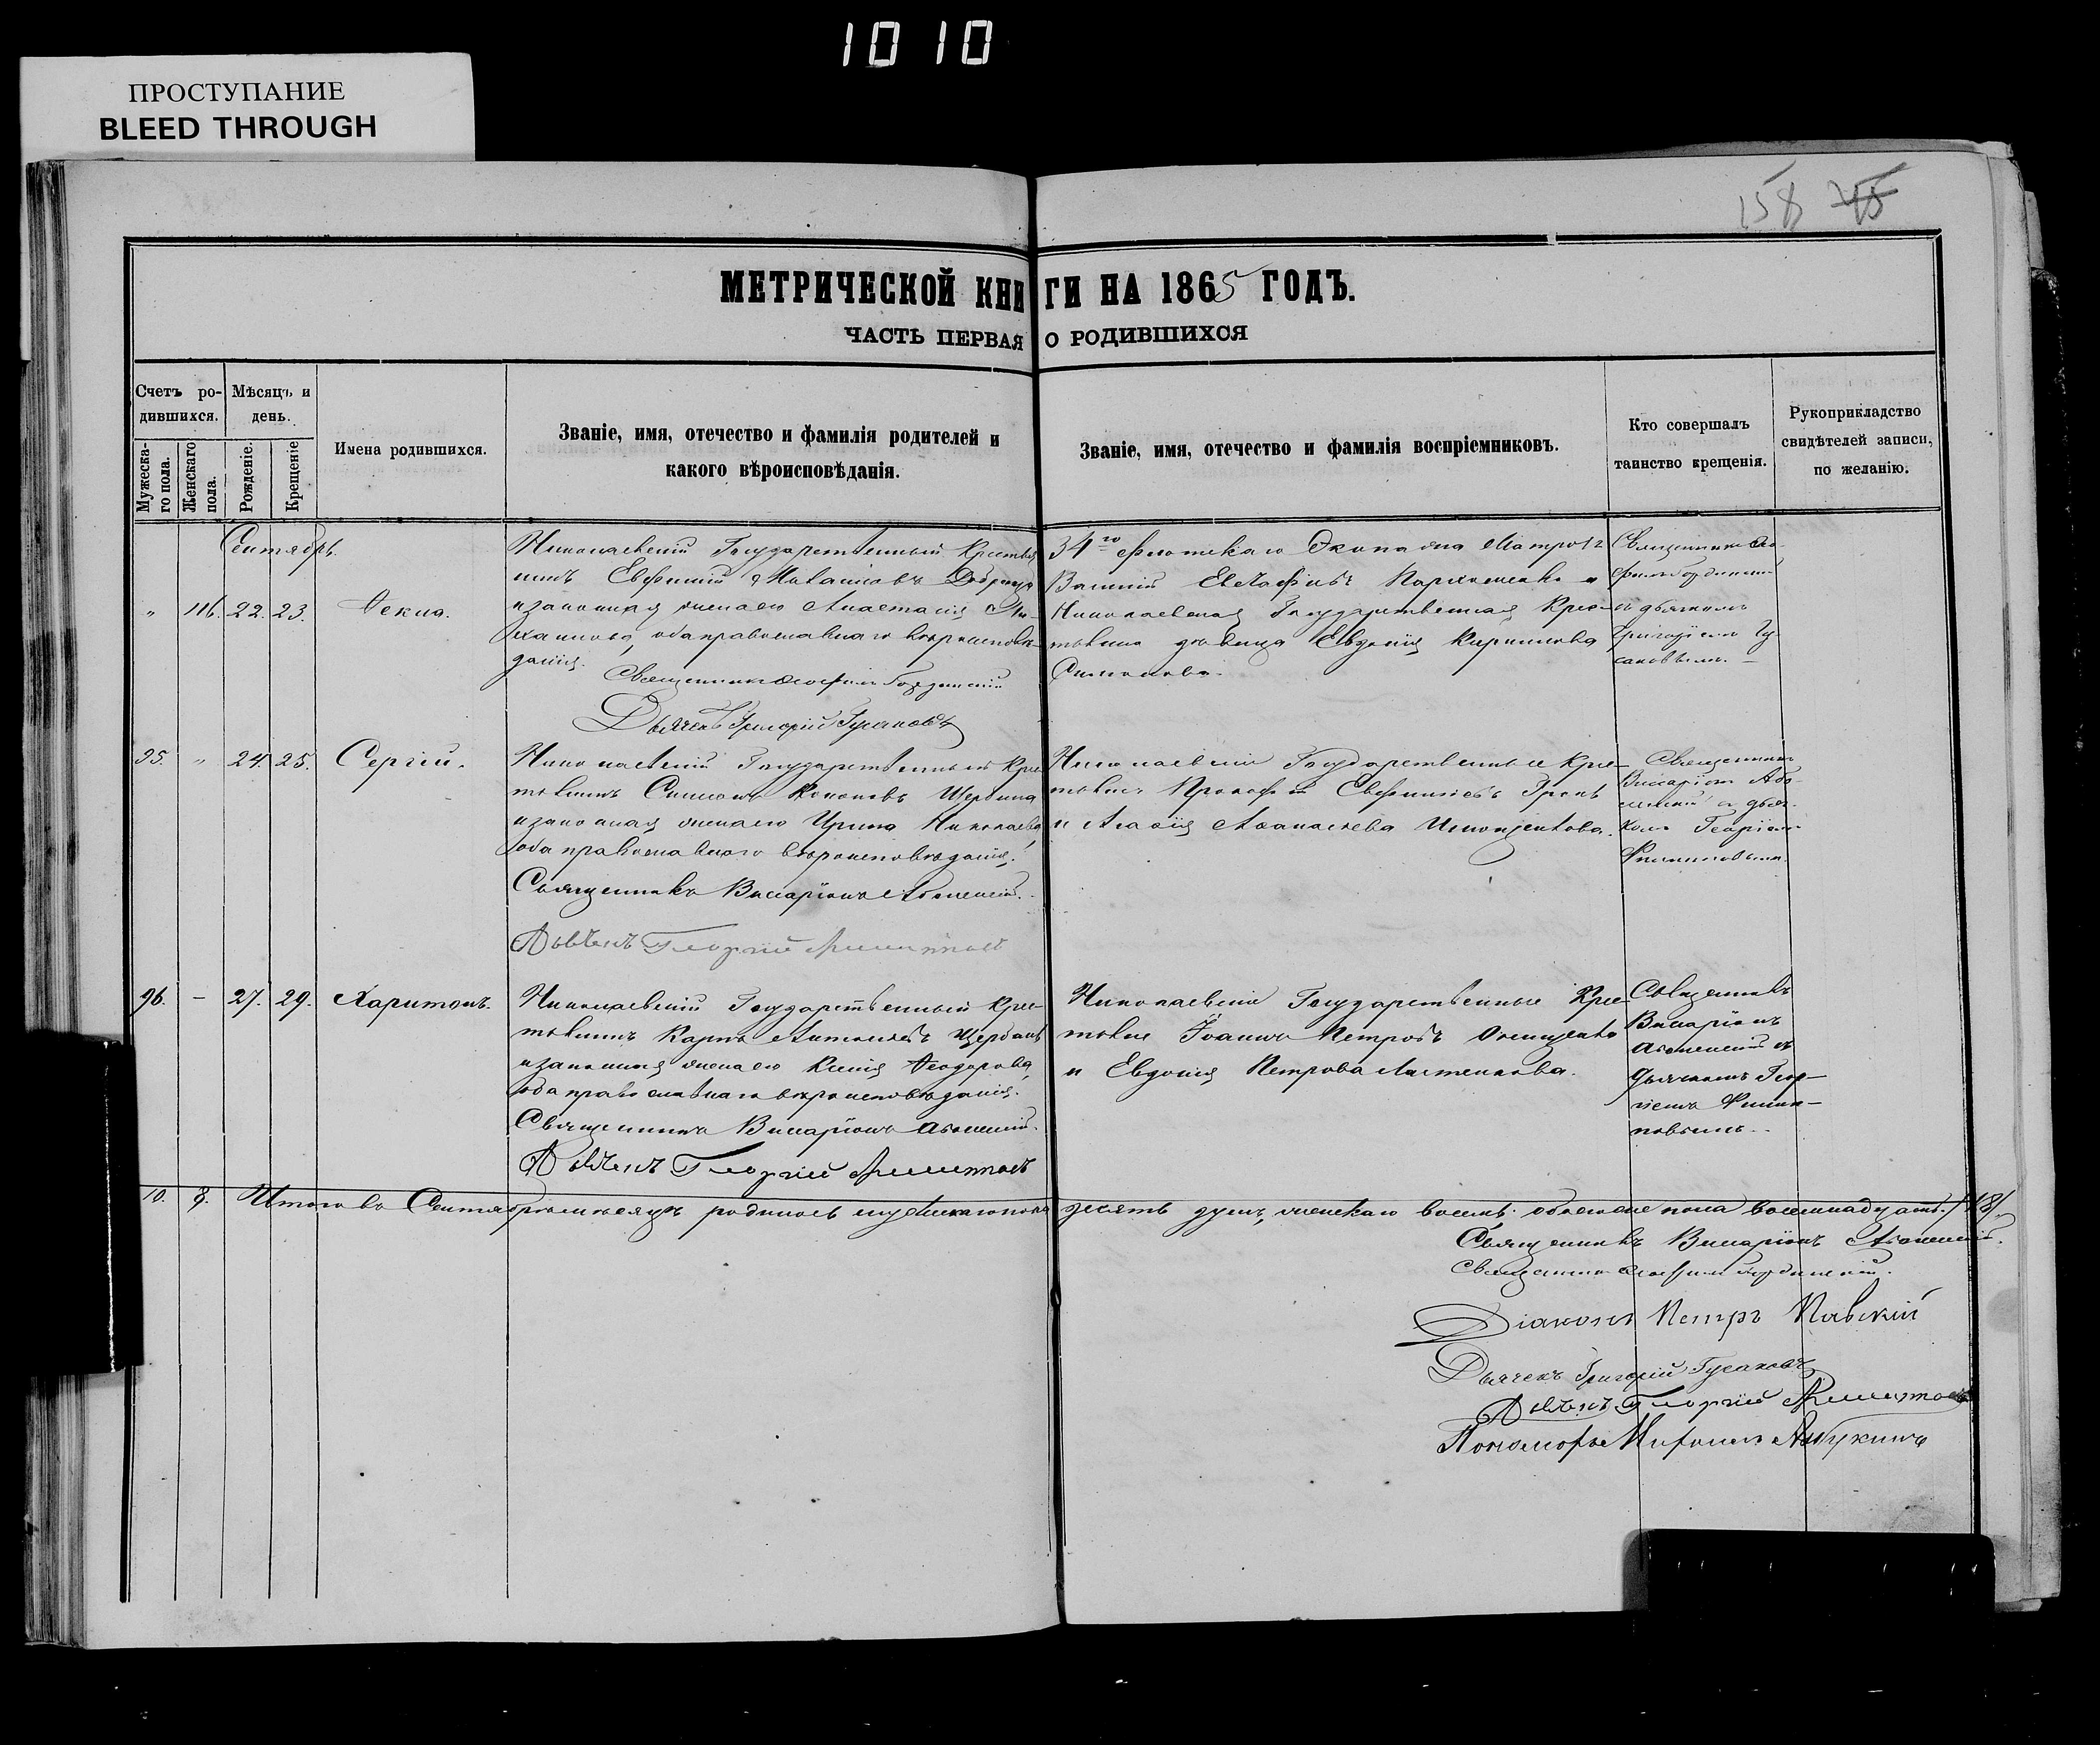 1010
ПРОСТУПАНИЕ
BLEED THROUGH
158 75
МЕТРИЧЕСКОЙ КНИГИ НА 1865 ГОДЪ.
ЧАСТЬ ПЕРВАЯ О РОДИВШИХСЯ
Счетъ ро-
дившихся.
Мужеска-
го пола.
Женскаго
пола.
Мѣсяцъ и
день.
Рожденіе.
Крещеніе
Имена родившихся.
Званіе, имя, отечество и фамилія родителей и
какого вѣроисповѣданія.
Званіе, имя, отечество и фамилія воспріемниковъ.
Кто совершалъ
таинство крещенія.
Рукоприкладство
свидѣтелей записи,
по желанію.
Сентябрь.
" 116. 22. 23. Ѳекла.
Николаевскій Государственный Крестья
нинъ Евфимій
и законная жена его Анастасія
оба православнаго вѣроисповѣ-
данія.
Священникъ
Дьячекъ Григорій Гусаковъ
34го Флотскаго Экипажа Матросъ
Василій Пархоменко и
Николаевская Государственная Крес-
тьянка дѣвица Евдокія Кирилова
Симонова.
Священникъ
съ дьячкомъ
Григоріемъ Гу-
саковымъ.
95. " 24. 25. Сергій.
Николаевскій Государственный Крес
тьянинъ Симеонъ Кононовъ Щербина
и законная жена его Ирина Николаева,
оба православнаго вѣроисповѣданія.
Священникъ Виссаріонъ
Дьячекъ Георгій Филиповъ
Николаевскіе Государственные Крес-
тьяне Прокофій Евфимовъ Грекъ
и Агафія Афанасьева
Священникъ
Виссаріонъ
и дьяч-
комъ Георгіемъ
Филиповымъ.
96. – 27. 29. Харитонъ.
Николаевскій Государственный Крес-
тьянинъ Карпъ Антоновъ Щербань
и законная жена его Ксенія Ѳеодорова,
оба православнаго вѣроисповѣданія.
Священникъ Виссаріонъ
Дьячекъ Георгій Филиповъ
Николаевскіе Государственные Крес-
тьяне Іоаннъ Петровъ Онищенко
и Евдокія Петрова
Священникъ
Виссаріонъ
съ
дьячкомъ Геор-
гіемъ Филип-
повымъ.
10. 8. Итого въ Сентябрѣ мѣсяцѣ родилось мужескаго пола десять душъ, женскаго восемь: обоего пола восемнадцать. /18/.
Священникъ Виссаріонъ
Священникъ
Діаконъ Петръ Павскій
Дьячекъ Григорій Гусаковъ
Дьячекъ Георгій Филиповъ
Пономарь